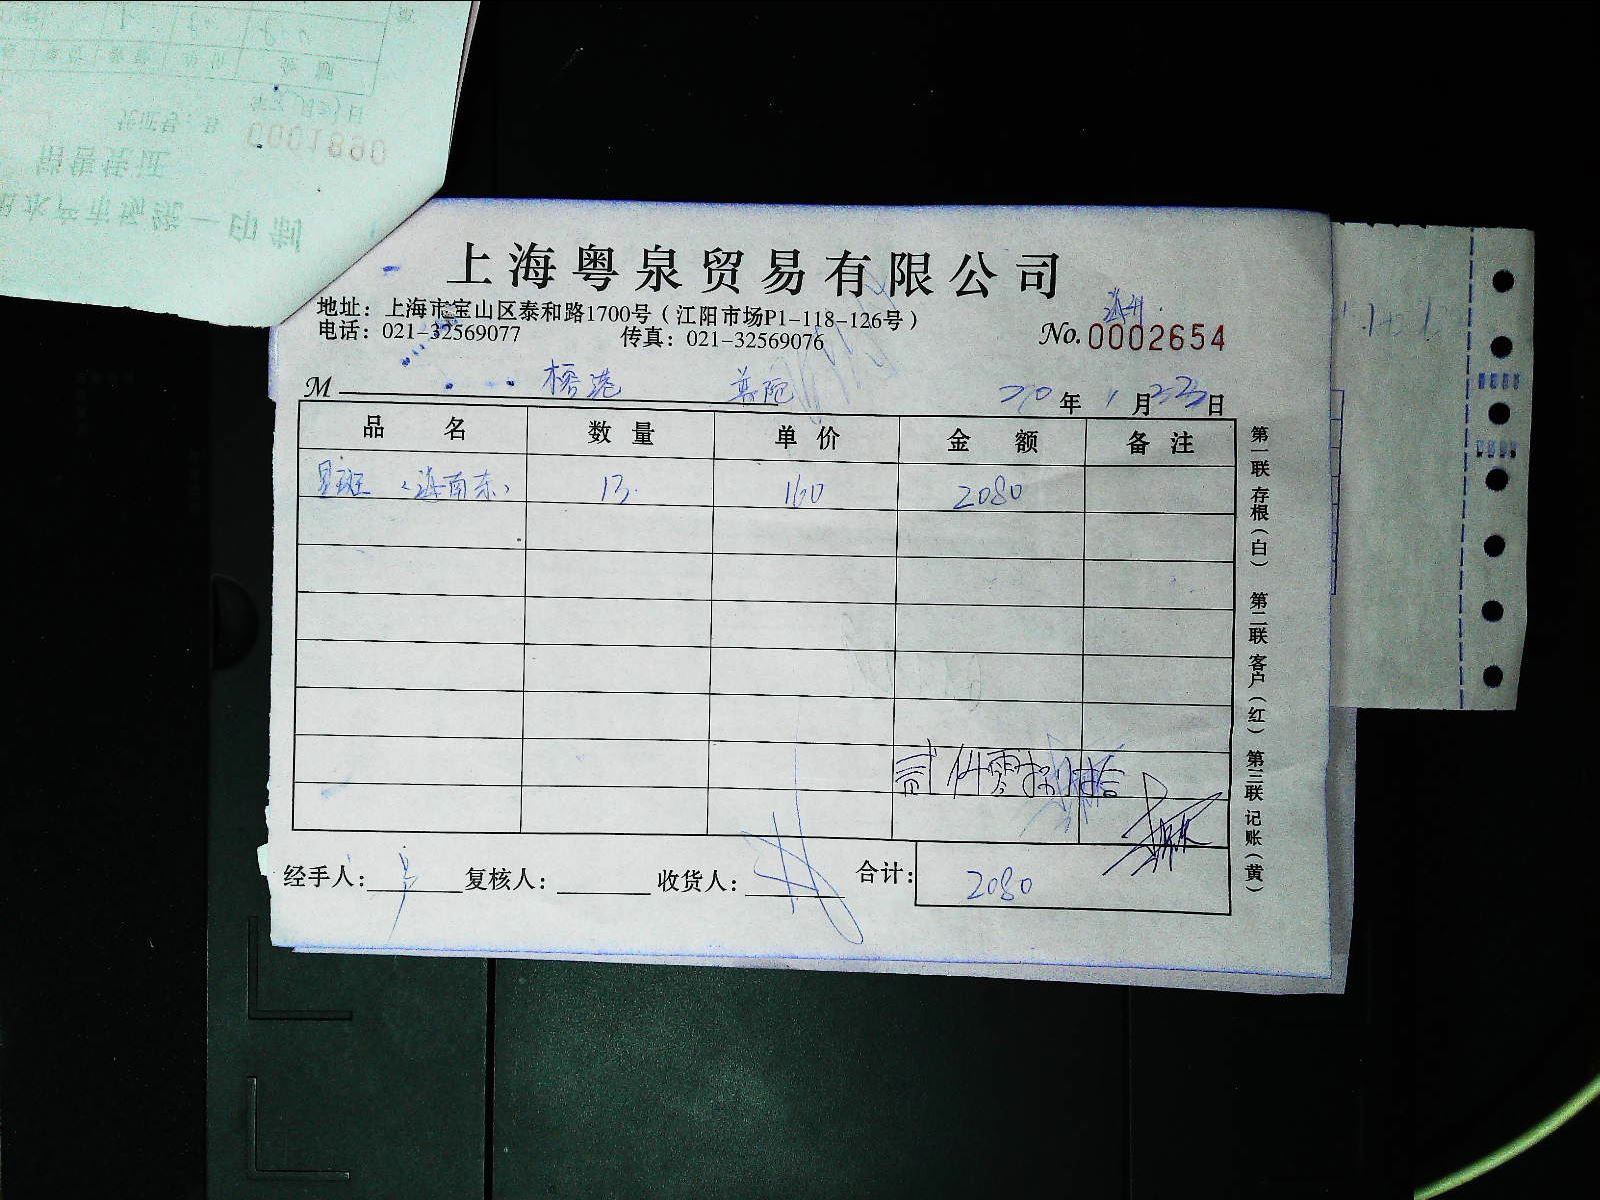 上海粤泉贸易有限公司
地址：上海市宝山区泰和路1700号（江阳市场P1-118-126号）
电话：021-32569077 传真：021-32569076
No.0002654
M 榕港 普陀 年 1月23日
品名 数量 单价 金额 备注
星斑（海南东） 13 160 2080
贰仟零捌拾
经手人： 复核人： 收货人： 合计： 2080
第一联 存根（白） 第二联 客户（红） 第三联 记账（黄）
0001890
凭证号：B
销售凭证
水产市场统一印制